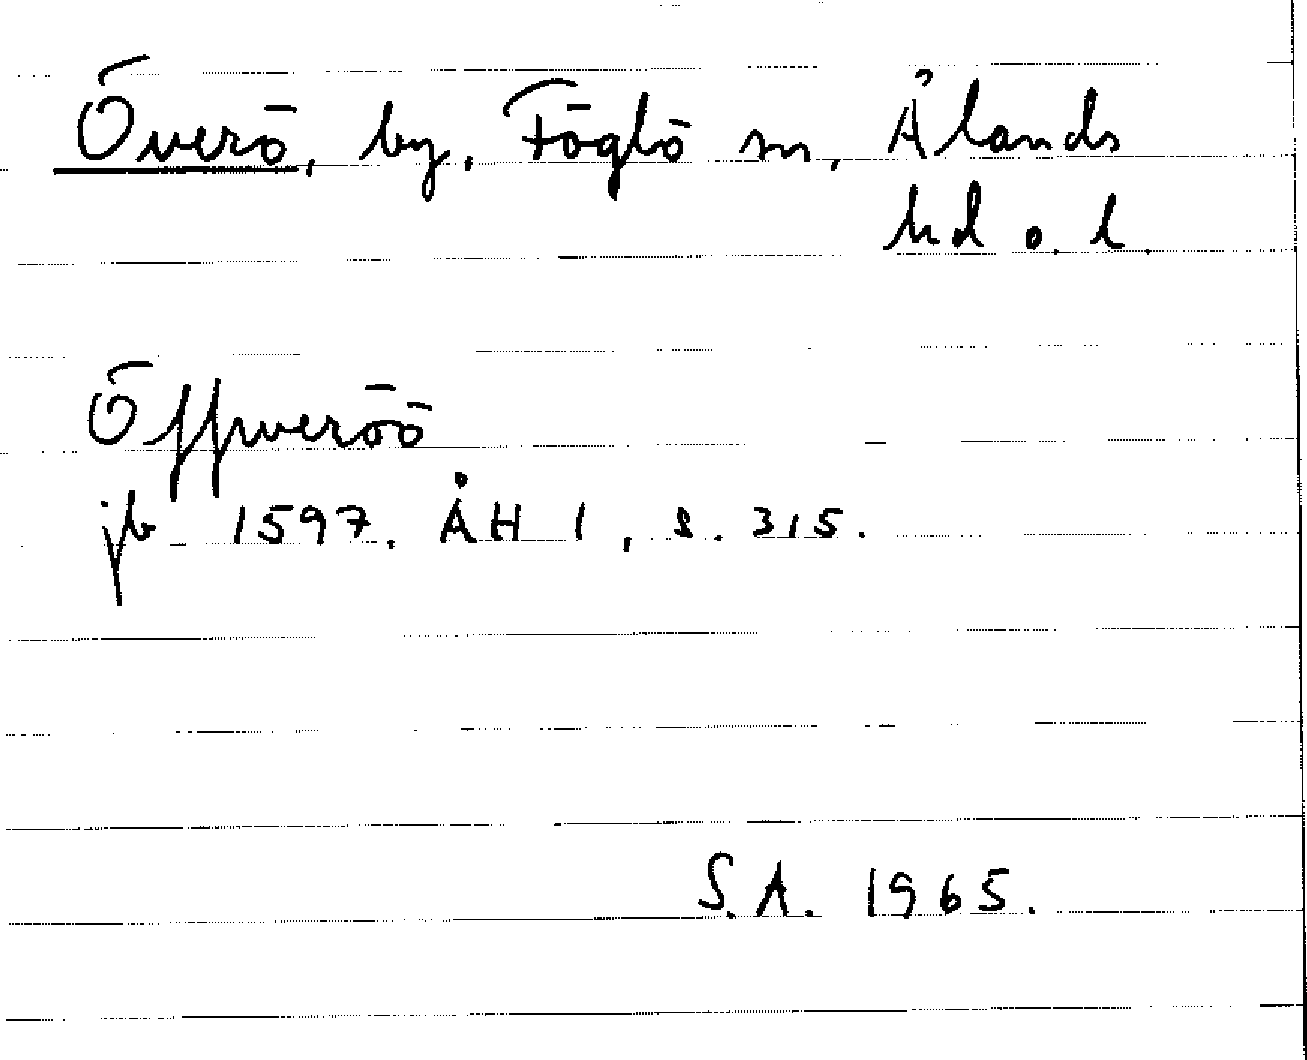 Överö, by, Föglö sn, Ålands
hd o. l.
Öffweröö
jb 1597. ÅH 1, s. 315.
S.A. 1965.